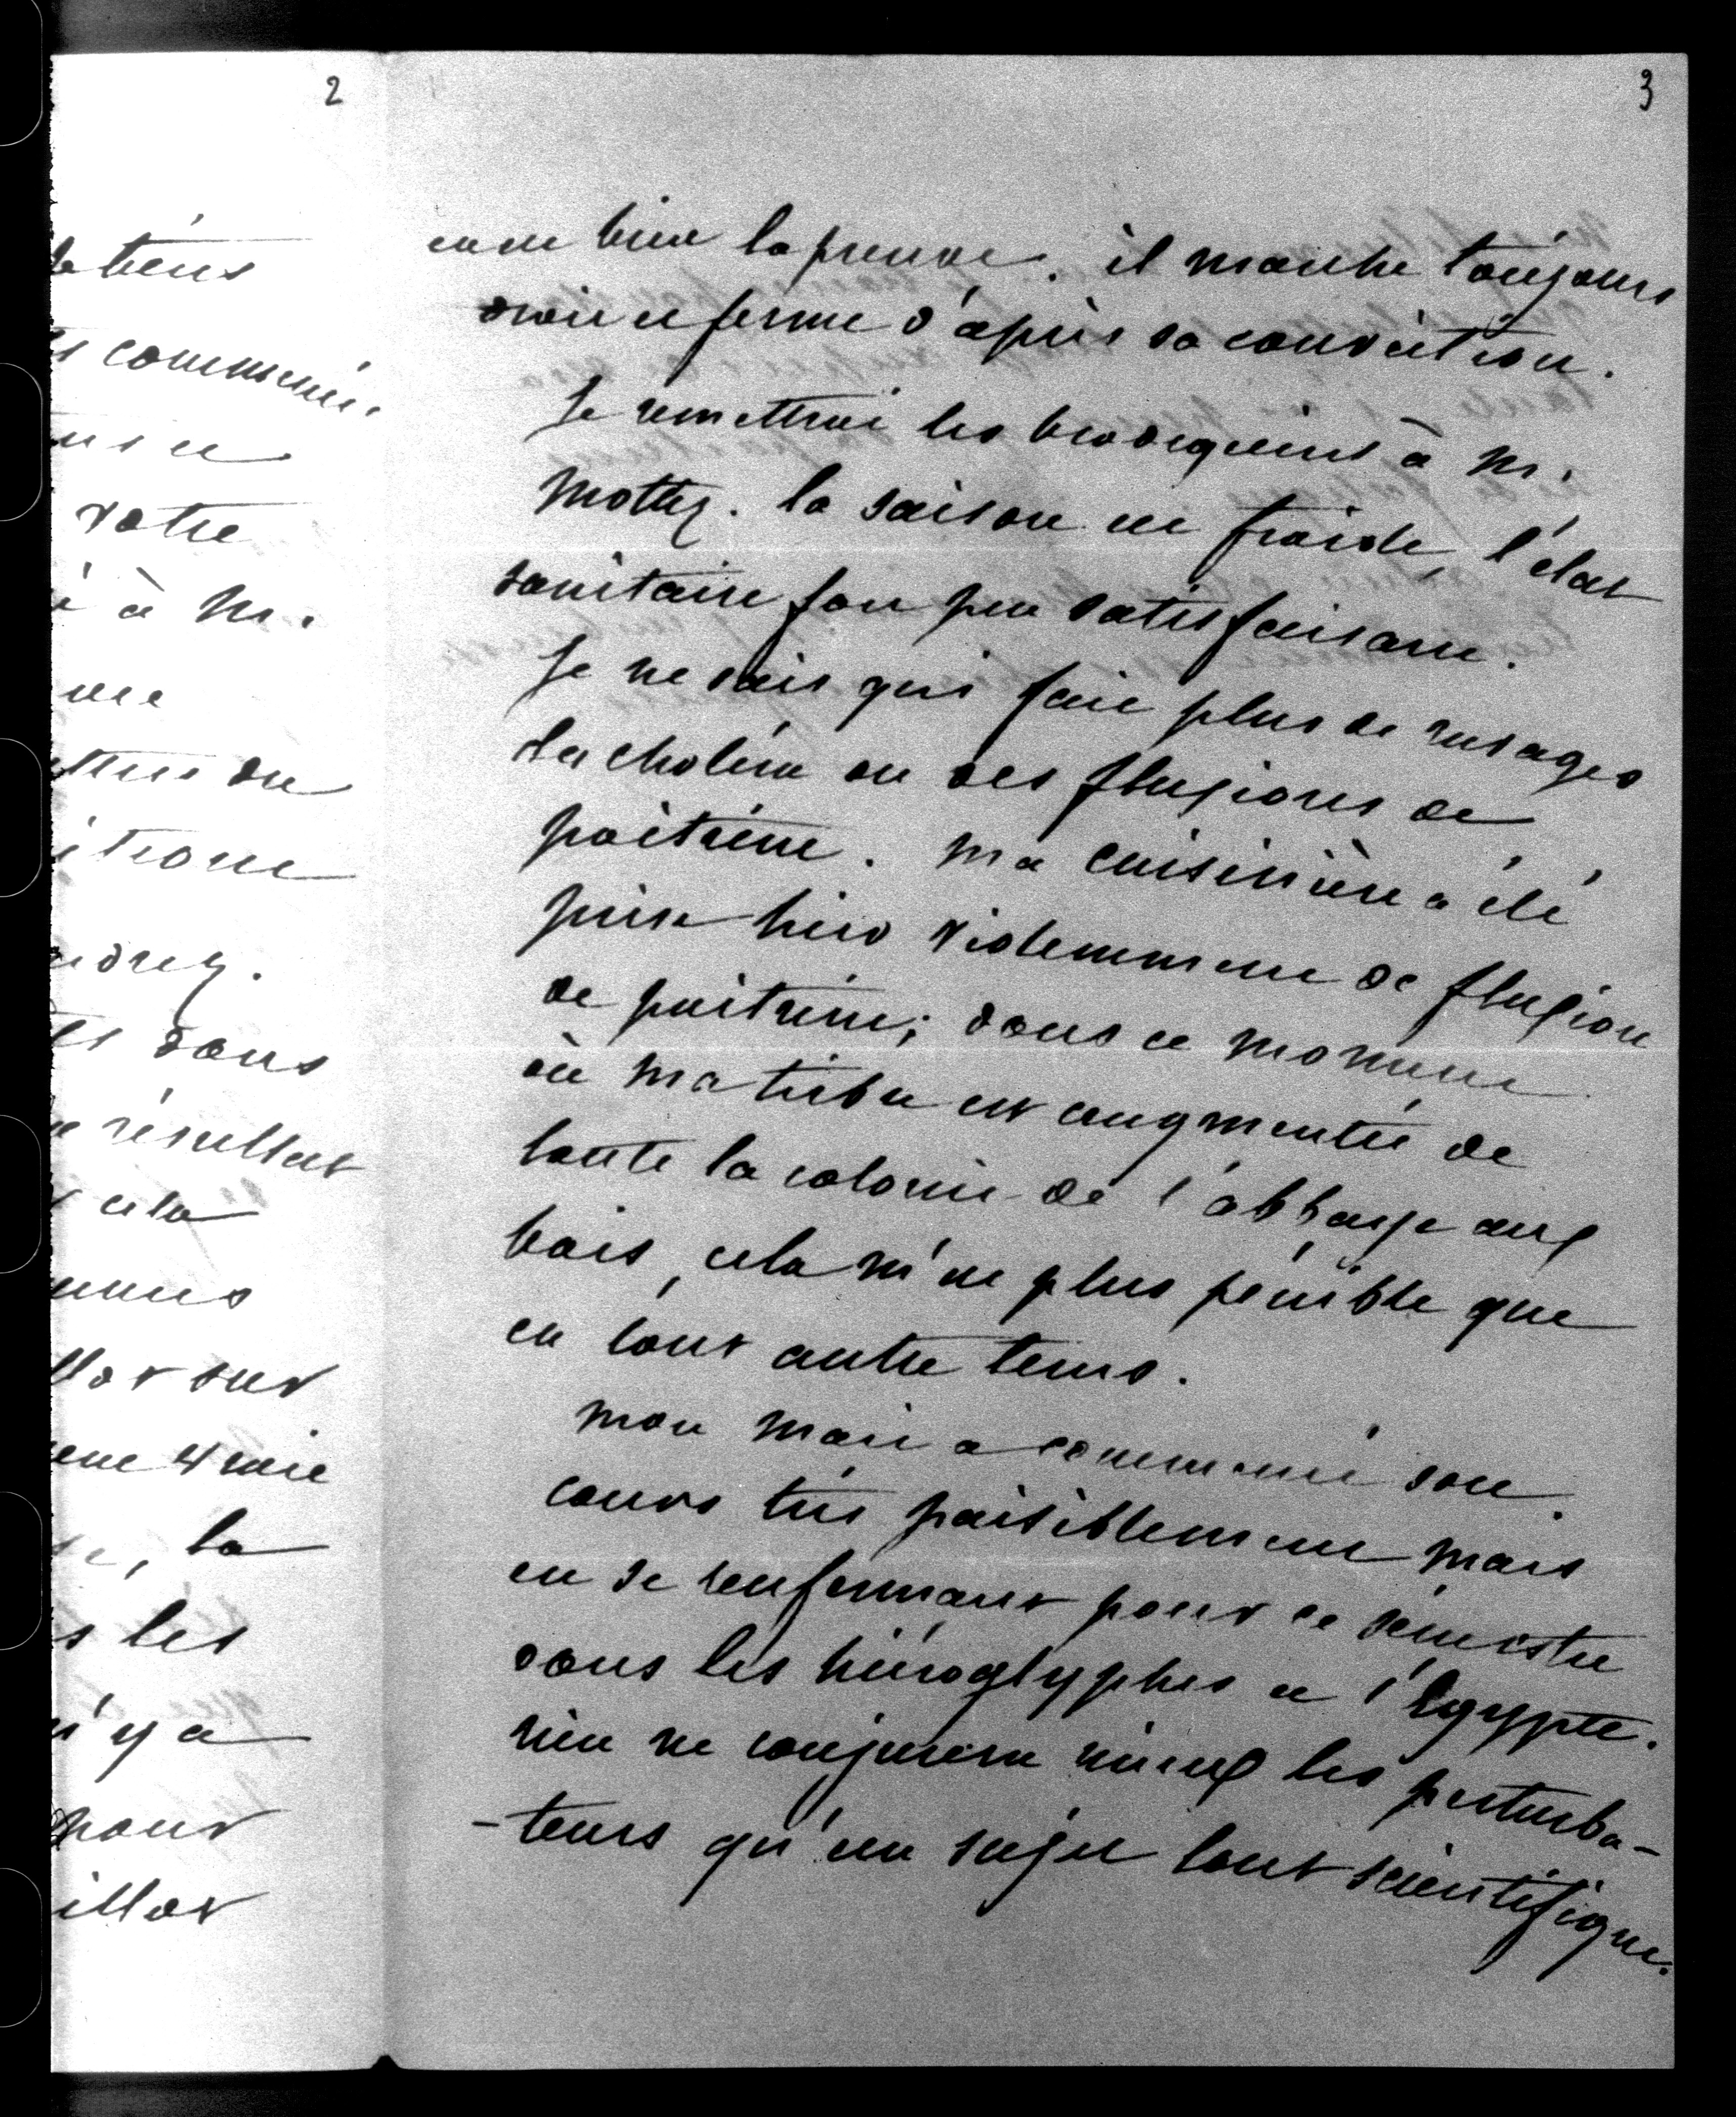 2
tiens
commenc.
votre
à M.
itrone
drez.
dans
résultat
cela
sur
la
les
n'y a
pour
3
en est bien la preuve. il marche toujours
droit et ferme d'après sa conviction.
Je remettrai les brodequins à M.
Mottez. la saison est froide, l'état
sanitaire fort peu satisfaisant.
Je ne sais qui fait plus de ravages
du choléra ou des fluxions de
poitrine. Ma cuisinière a été
prise hier violemment de fluxion
de poitrine; dans ce moment
où ma tribu est augmentée de
toute la colonie de l'abbaye aux
bois, cela m'est plus pénible que
en tout autre tems.
Mon mari a commencé son
cours très paisiblement mais
en se renfermant pour ce semestre
dans les hiéroglyphes et l'Egypte.
rien ne conjurera mieux les perturba-
-teurs qu'un sujet tout scientifique.